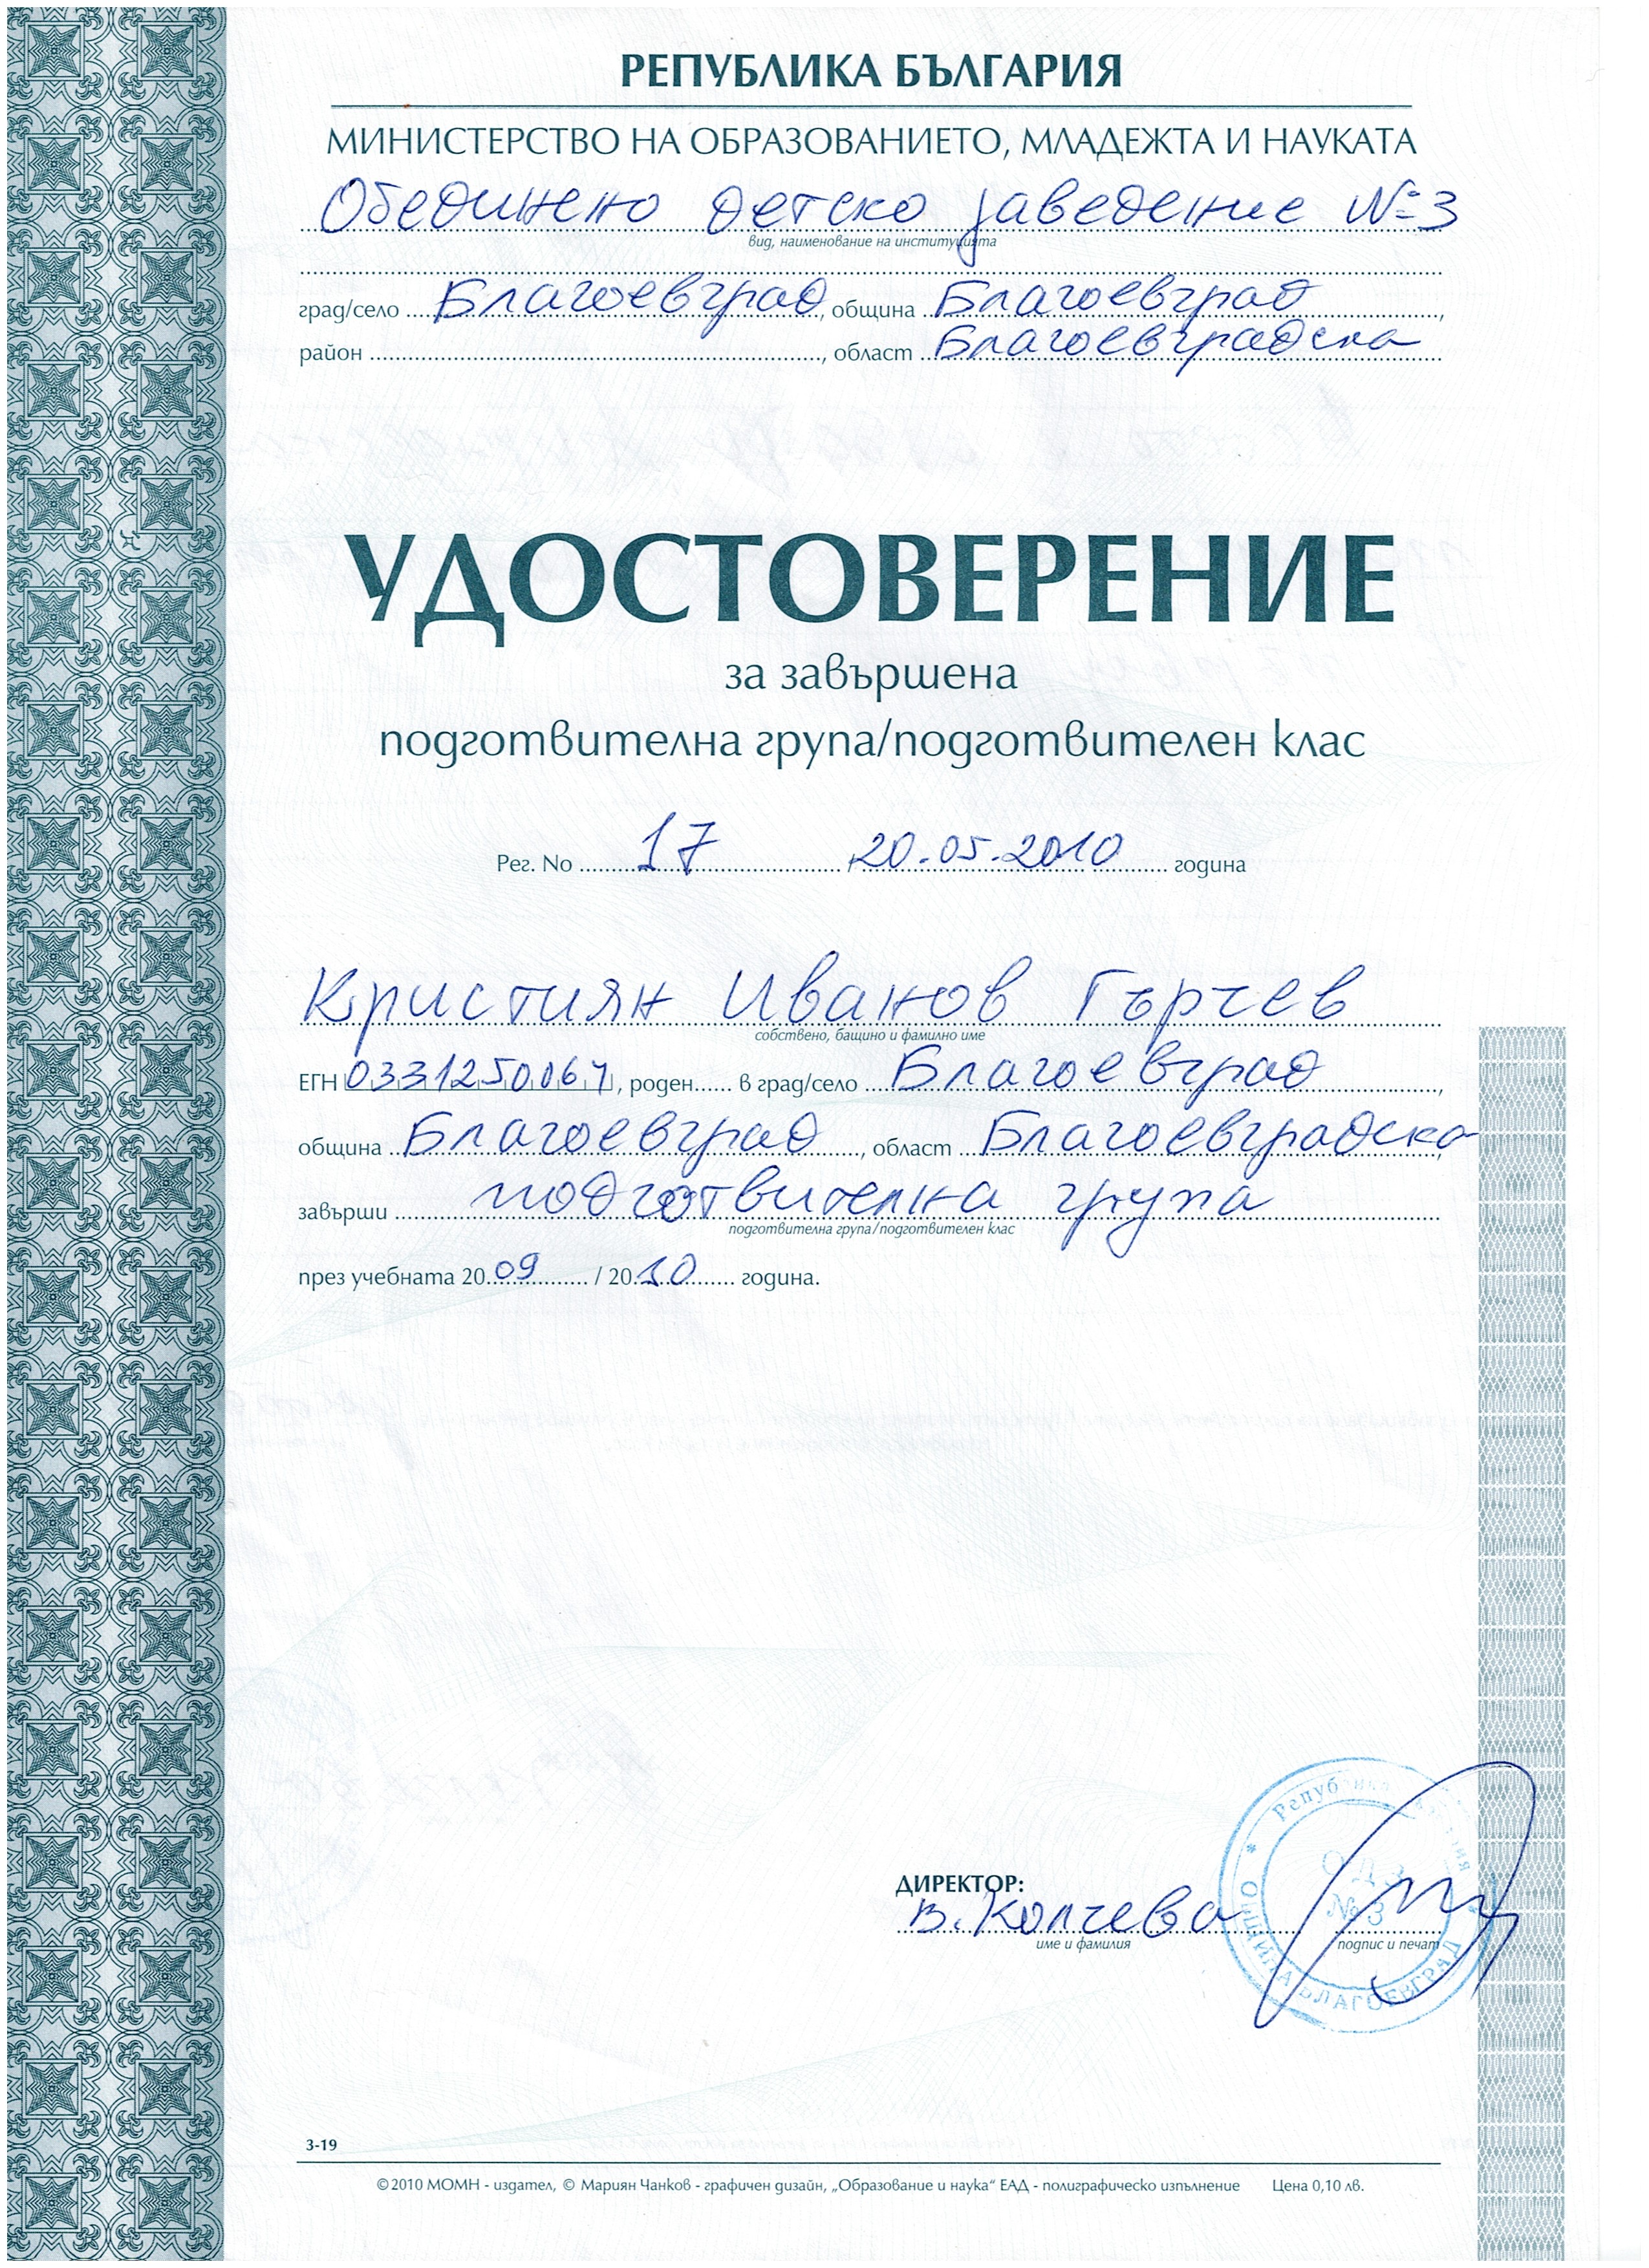 РЕПУБЛИКА БЪЛГАРИЯ
МИНИСТЕРСТВО НА ОБРАЗОВАНИЕТО, МЛАДЕЖТА И НАУКАТА
Обединено детско заведение №3
вид, наименование на институцията
град/село Благоевград, община Благоевград,
район ................, област Благоевградска
УДОСТОВЕРЕНИЕ
за завършена
подготвителна група/подготвителен клас
Рег. No 17 / 20.05.2010 година
Кристиян Иванов Гърчев
собствено, бащино и фамилно име
ЕГН 0331250067, роден...... в град/село Благоевград,
община Благоевград, област Благоевградска,
завърши подготвителна група
подготвителна група/подготвителен клас
през учебната 2009 / 2010 година.
ДИРЕКТОР:
В. Колчева
име и фамилия подпис и печат
Република
ОДЗ
№ 3
ОБЩИНА БЛАГОЕВГРАД
3-19
©2010 МОМН - издател, © Мариян Чанков - графичен дизайн, „Образование и наука“ ЕАД - полиграфическо изпълнение Цена 0,10 лв.